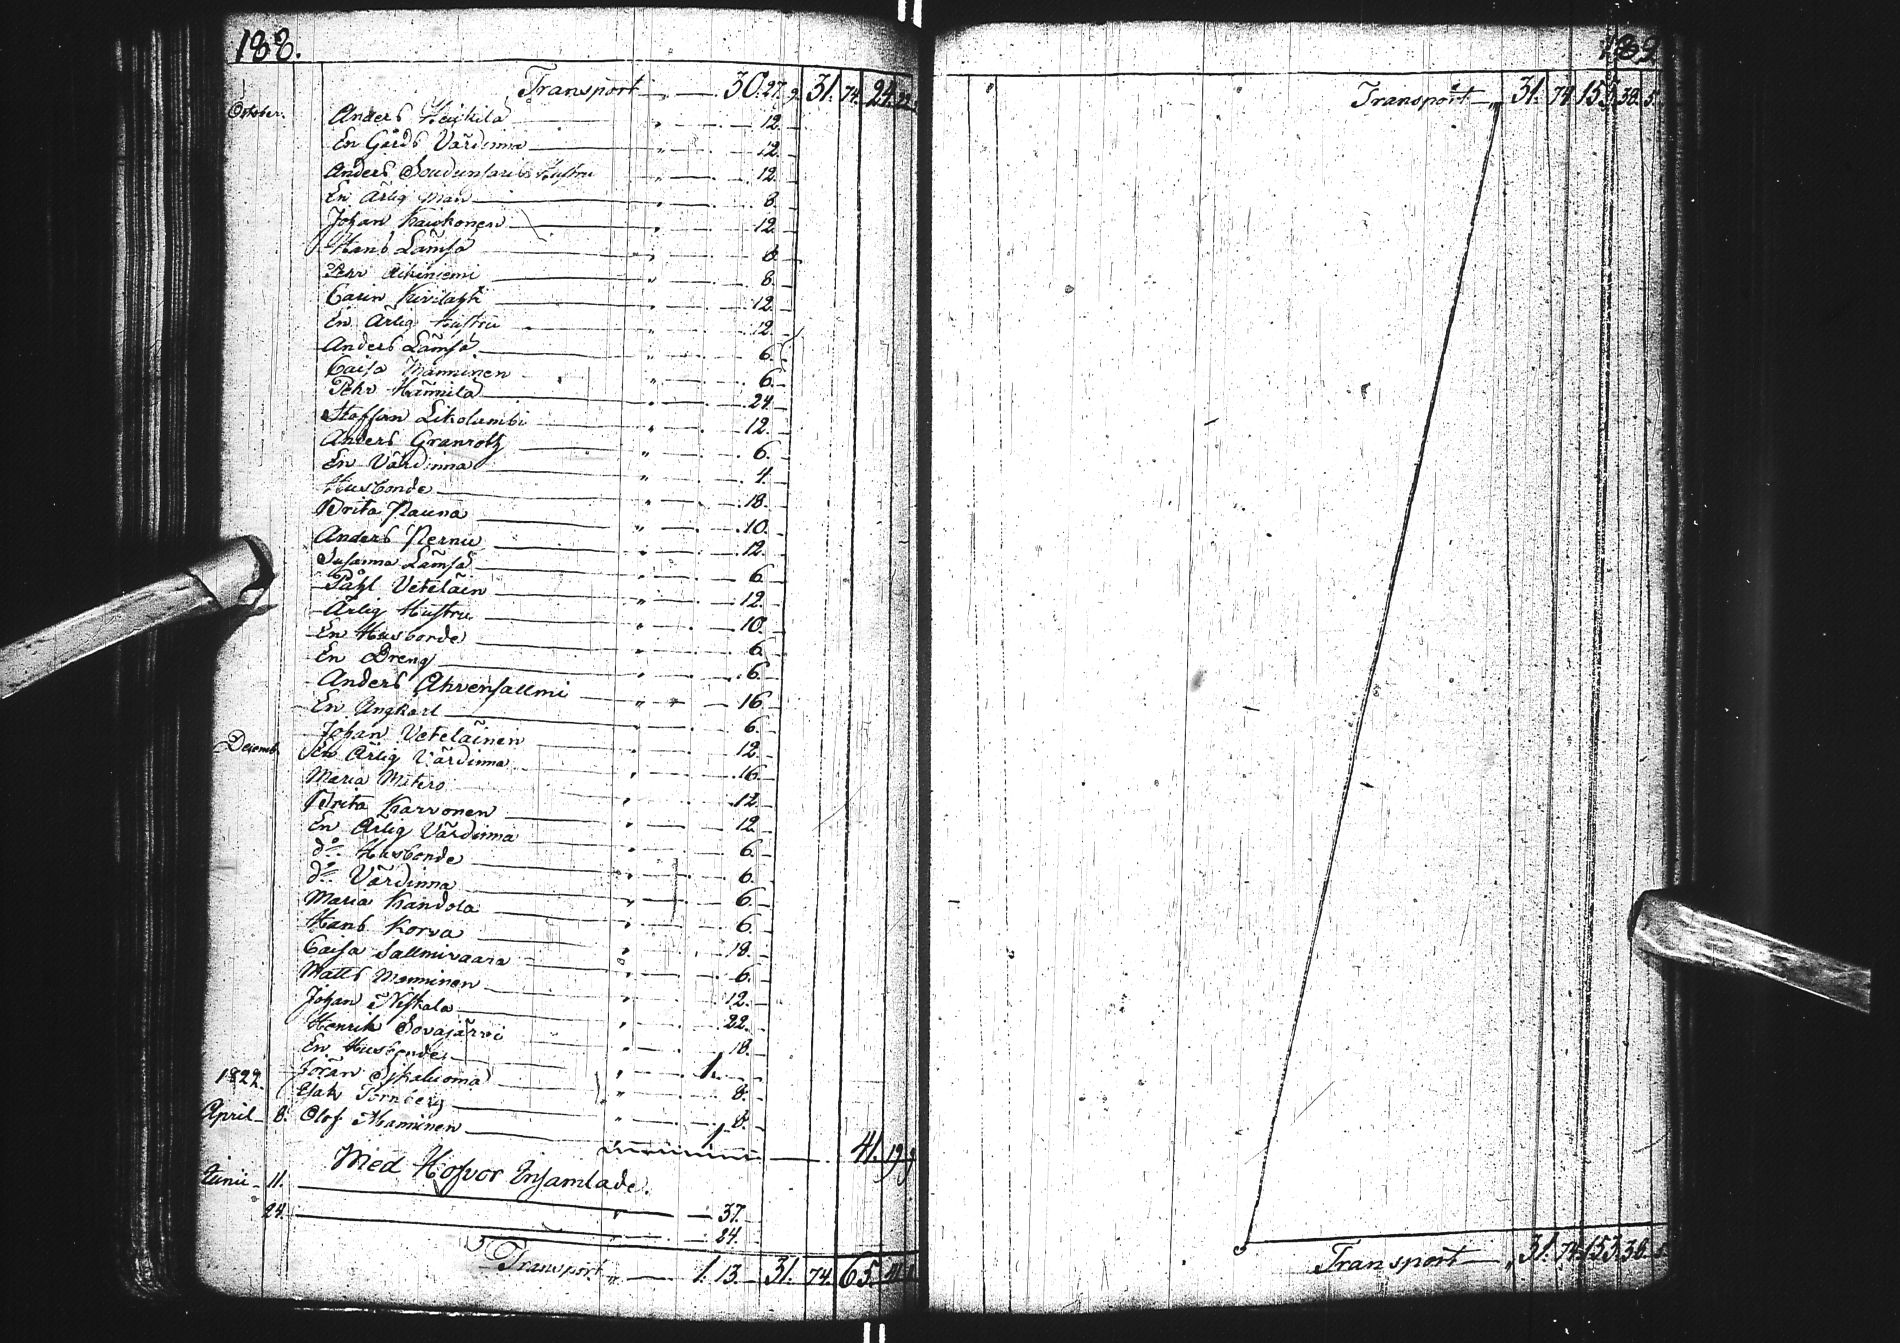 188.
Transport 30. 27. 9. 31. 74. 24. 22.
October. Anders Heickilä " 12.
En Gårds Värdinna " 12.
Anders Soudunsaari Hustru " 12.
En Ärlig Man " 8.
Johan Kauckonen " 12.
Hans Lämsä " 6.
Pehr " 8.
Carin Kivilachti " 12.
En Ärlig Hustru " 12.
Anders Lämsä " 6.
Caisa Manninen " 6.
Pehr Hännilä " 24.
Staffan Likolambi " 12.
Anders Granroth " 6.
En Värdinna " 4.
Husbonde " 18.
Brita Nauna " 10.
Anders Nernu " 12.
Susanna Lämsä " 6.
Påhl Veteläin " 12.
Ärlig Hustru " 10.
En Husbonde " 6.
En Dreng " 6.
Anders Ahvensallmi " 16.
En Ungkarl " 6.
Johan Veteläinen " 12.
Decemb. En Ärlig Värdinna " 16.
Maria Mitero " 12.
Brita Karvonen " 12.
En Ärlig Värdinna " 6.
do Husbonde " 6.
do Värdinna " 6.
Maria Kandola " 6.
Hans Korva " 18.
Caisa Sallmivaara " 6.
Matts Manninen " 12.
Johan Niskala " 22.
Henrik Sovajärvi " 18.
En Husbonde " 1.
1822. Jöran " 8.
Esak Tornberg " 8.
April 8. Olof Manninen 1.
41. 19. 9
Med Hofvor Insamlade.
Junii 11. " 37.
24. " 24.
Transport " 1. 13. 31. 74. 65.
189
Transport " 31. 74. 153. 38. 5.
Transport " 31. 74. 153. 38. 5.